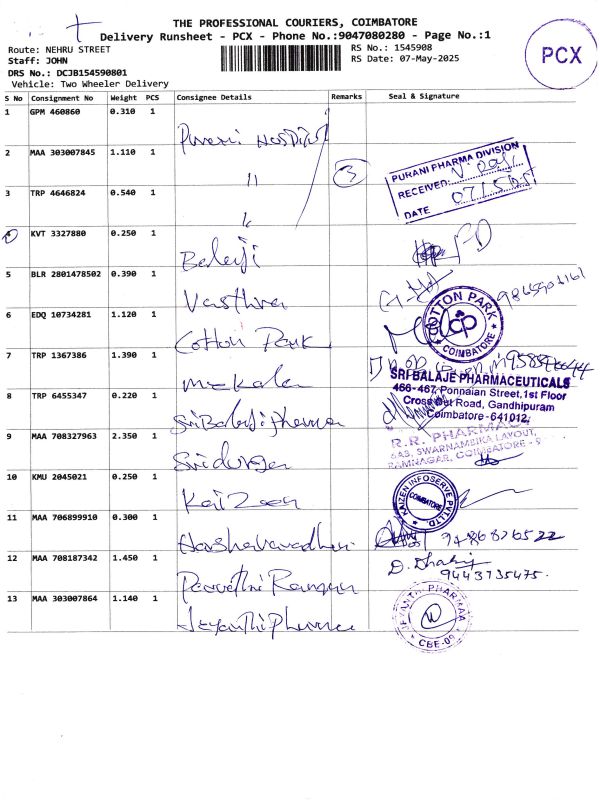 THE PROFESSIONAL COURIERS, COIMBATORE
Delivery Runsheet - PCX - Phone No.:9047080280 - Page No.:1
Route: NEHRU STREET
RS No.: 1545908
Staff: JOHN
RS Date: 07-May-2025
DRS No.: DCJB154590801
Vehicle: Two Wheeler Delivery
PCX
S No Consignment No Weight PCS Consignee Details Remarks Seal & Signature
1 GPM 460860 0.310 1
Purani Hospital
2 MAA 303007845 1.110 1
"
3
PURANI PHARMA DIVISION
RECEIVED:
DATE
3 TRP 4646824 0.540 1
4 KVT 3327880 0.250 1
Balaji
5 BLR 2801478502 0.390 1
Vasthra
6 EDQ 10734281 1.120 1
Cotton Park
COTTON PARK
cp
COIMBATORE
7 TRP 1367386 1.390 1
Mekala
8 TRP 6455347 0.220 1
Sri Balaji Pharma
SRI BALAJE PHARMACEUTICALS
466-467, Ponnaian Street, 1st Floor
Cross Cut Road, Gandhipuram
Coimbatore -641012.
9 MAA 708327963 2.350 1
Sri durga
R.R. PHARMA
SWARNAMBIKA LAYOUT,
RAMNAGAR, COIMBATORE - 9
10 KMU 2045021 0.250 1
Kaizen
KAIZEN INFOSERVE PVT.LTD
COIMBATORE
11 MAA 706899910 0.300 1
Harshavardhini
12 MAA 708187342 1.450 1
9443735475
13 MAA 303007864 1.140 1
Jeyanthi Pharma
JEYANTHI PHARMAA
CBE-09